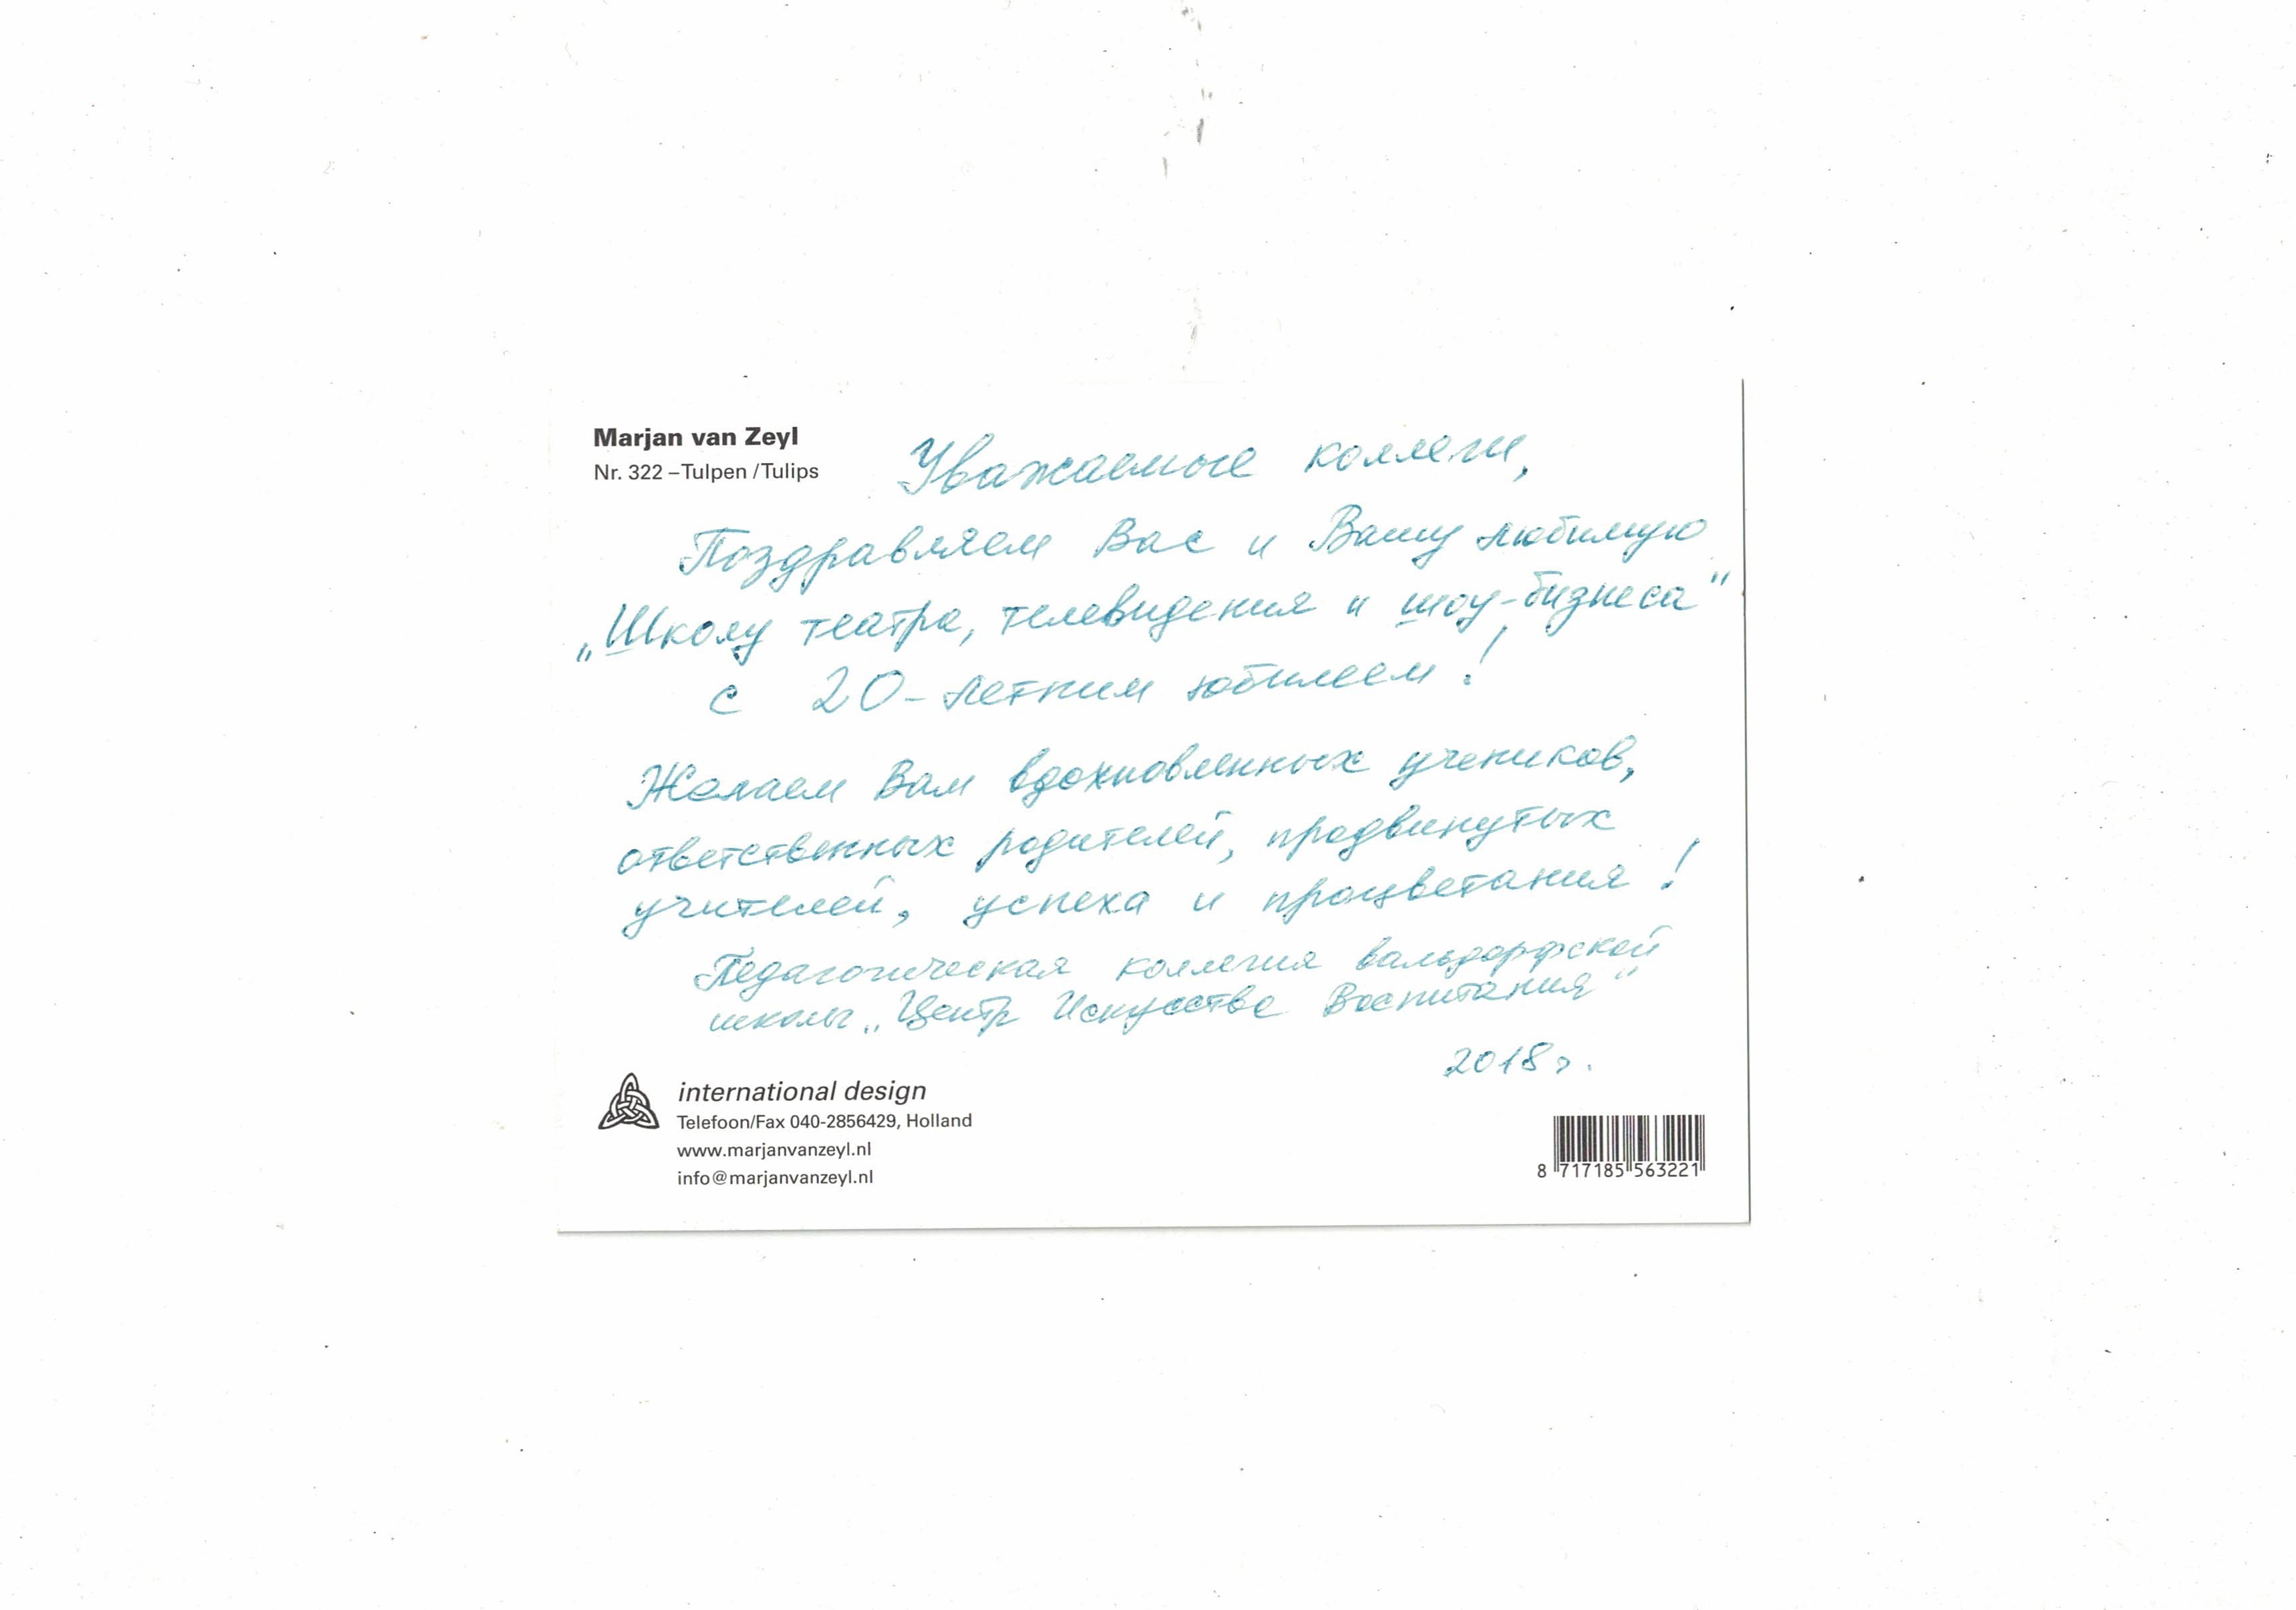 Marjan van Zeyl
Nr. 322 – Tulpen / Tulips
Уважаемые коллеги,
Поздравляем Вас и Вашу любимую
„Школу театра, телевидения и шоу-бизнеса"
с 20-летним юбилеем!
Желаем Вам вдохновленных учеников,
ответственных родителей, продвинутых
учителей, успеха и процветания!
Педагогическая коллегия вальдорфской
школы „Центр Искусства Воспитания"
2018 г.
international design
Telefoon/Fax 040-2856429, Holland
www.marjanvanzeyl.nl
info@marjanvanzeyl.nl
8 717185 563221